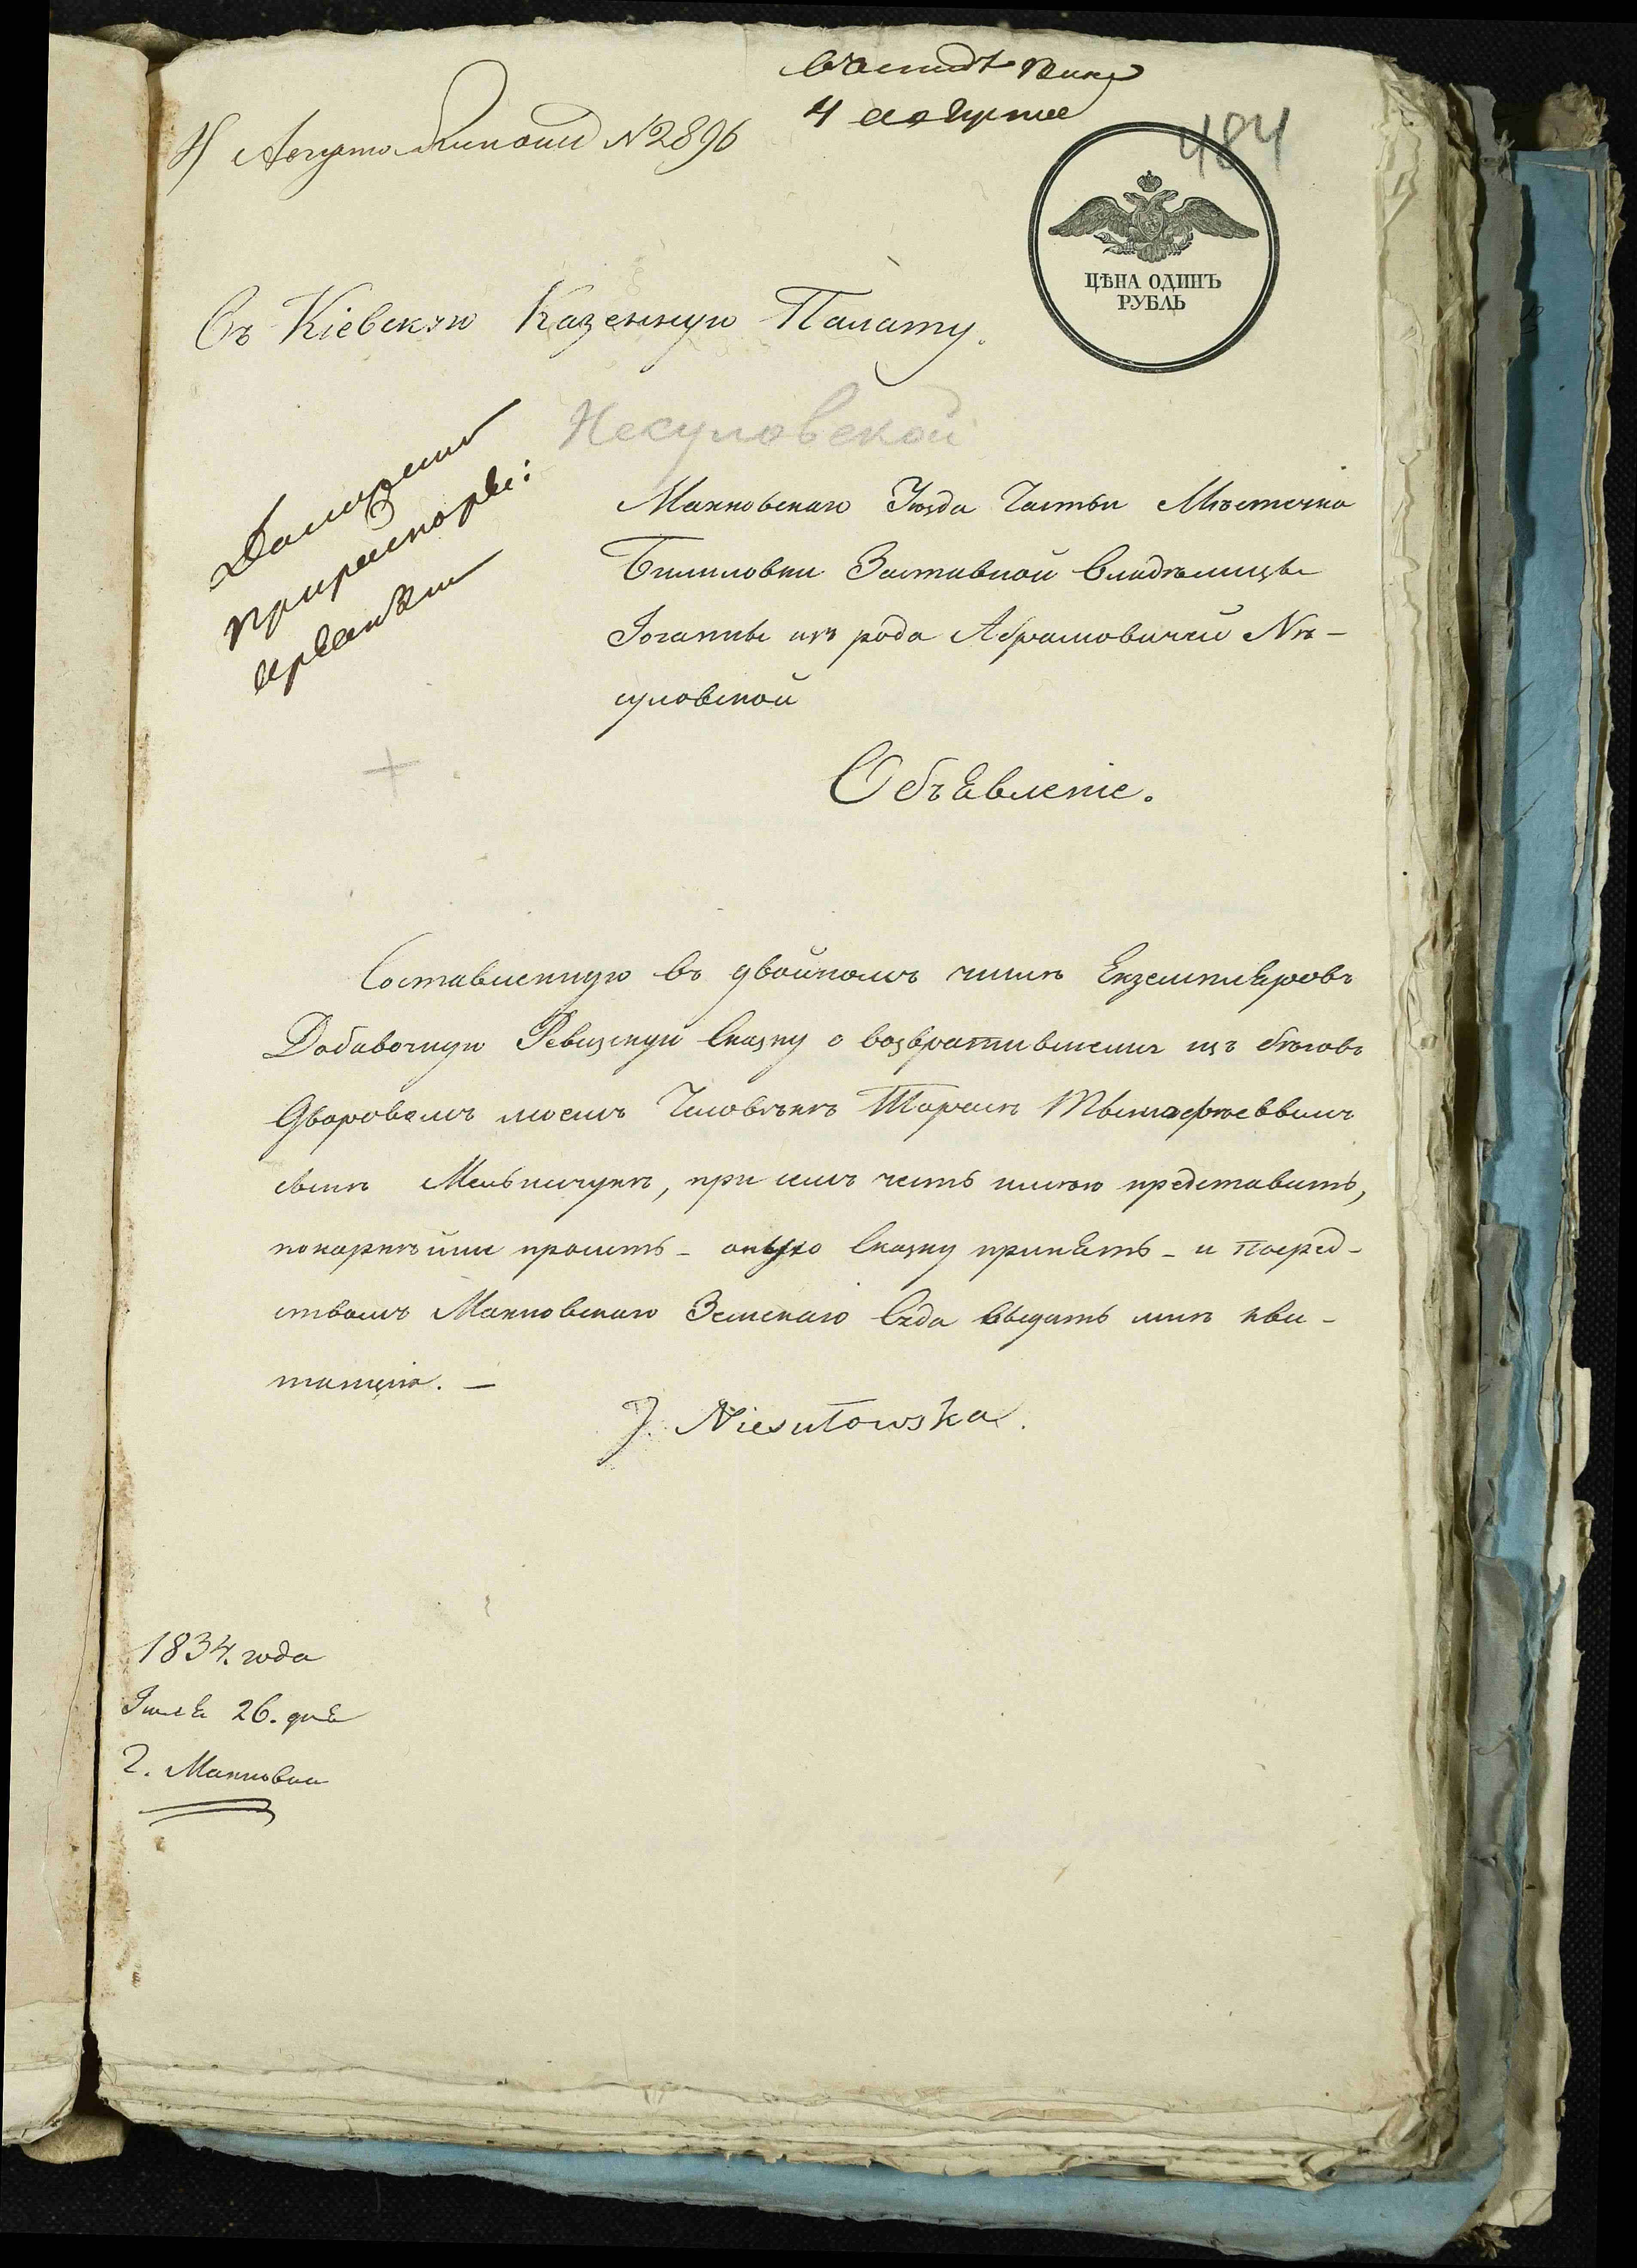 4 августа
4 Августа №2896
484
ЦѢНА ОДИНЪ
РУБЛЬ
Въ Кіевскую Казенную Палату.
Несуловской
Махновскаго Уѣзда Части Мѣстечка
Билиловки Заставной Владѣлицы
Іоганны изъ рода Абрамовичей Нѣ-
суловской
Объявленіе.
Составленную въ двойномъ числѣ Екземпляровъ
Добавочную Ревизскую Сказку о возвратившемся изъ бѣговъ
Дворовомъ моемъ Человѣкѣ
сынѣ Мельничукѣ, при семъ честь имѣю представить,
покорнѣйше просить - оную Сказку принять - и посред-
ствомъ Махновскаго Земскаго Суда выдать мнѣ кви-
танцію. —
J. Niesułowska.
1834. года
Іюля 26. дня
Г. Махновка